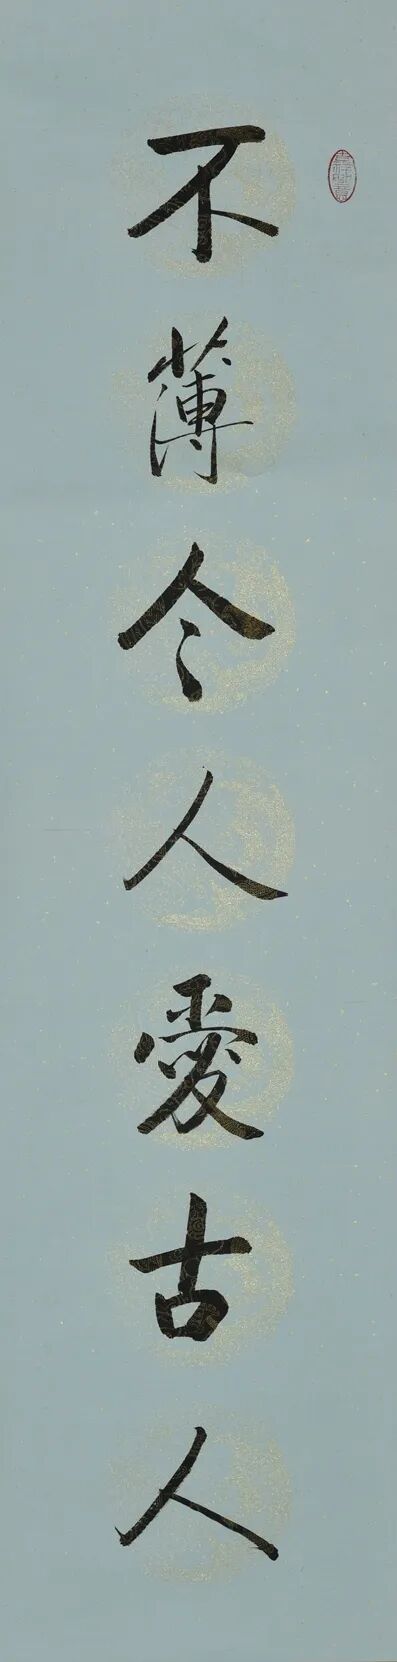 不薄今人愛古人